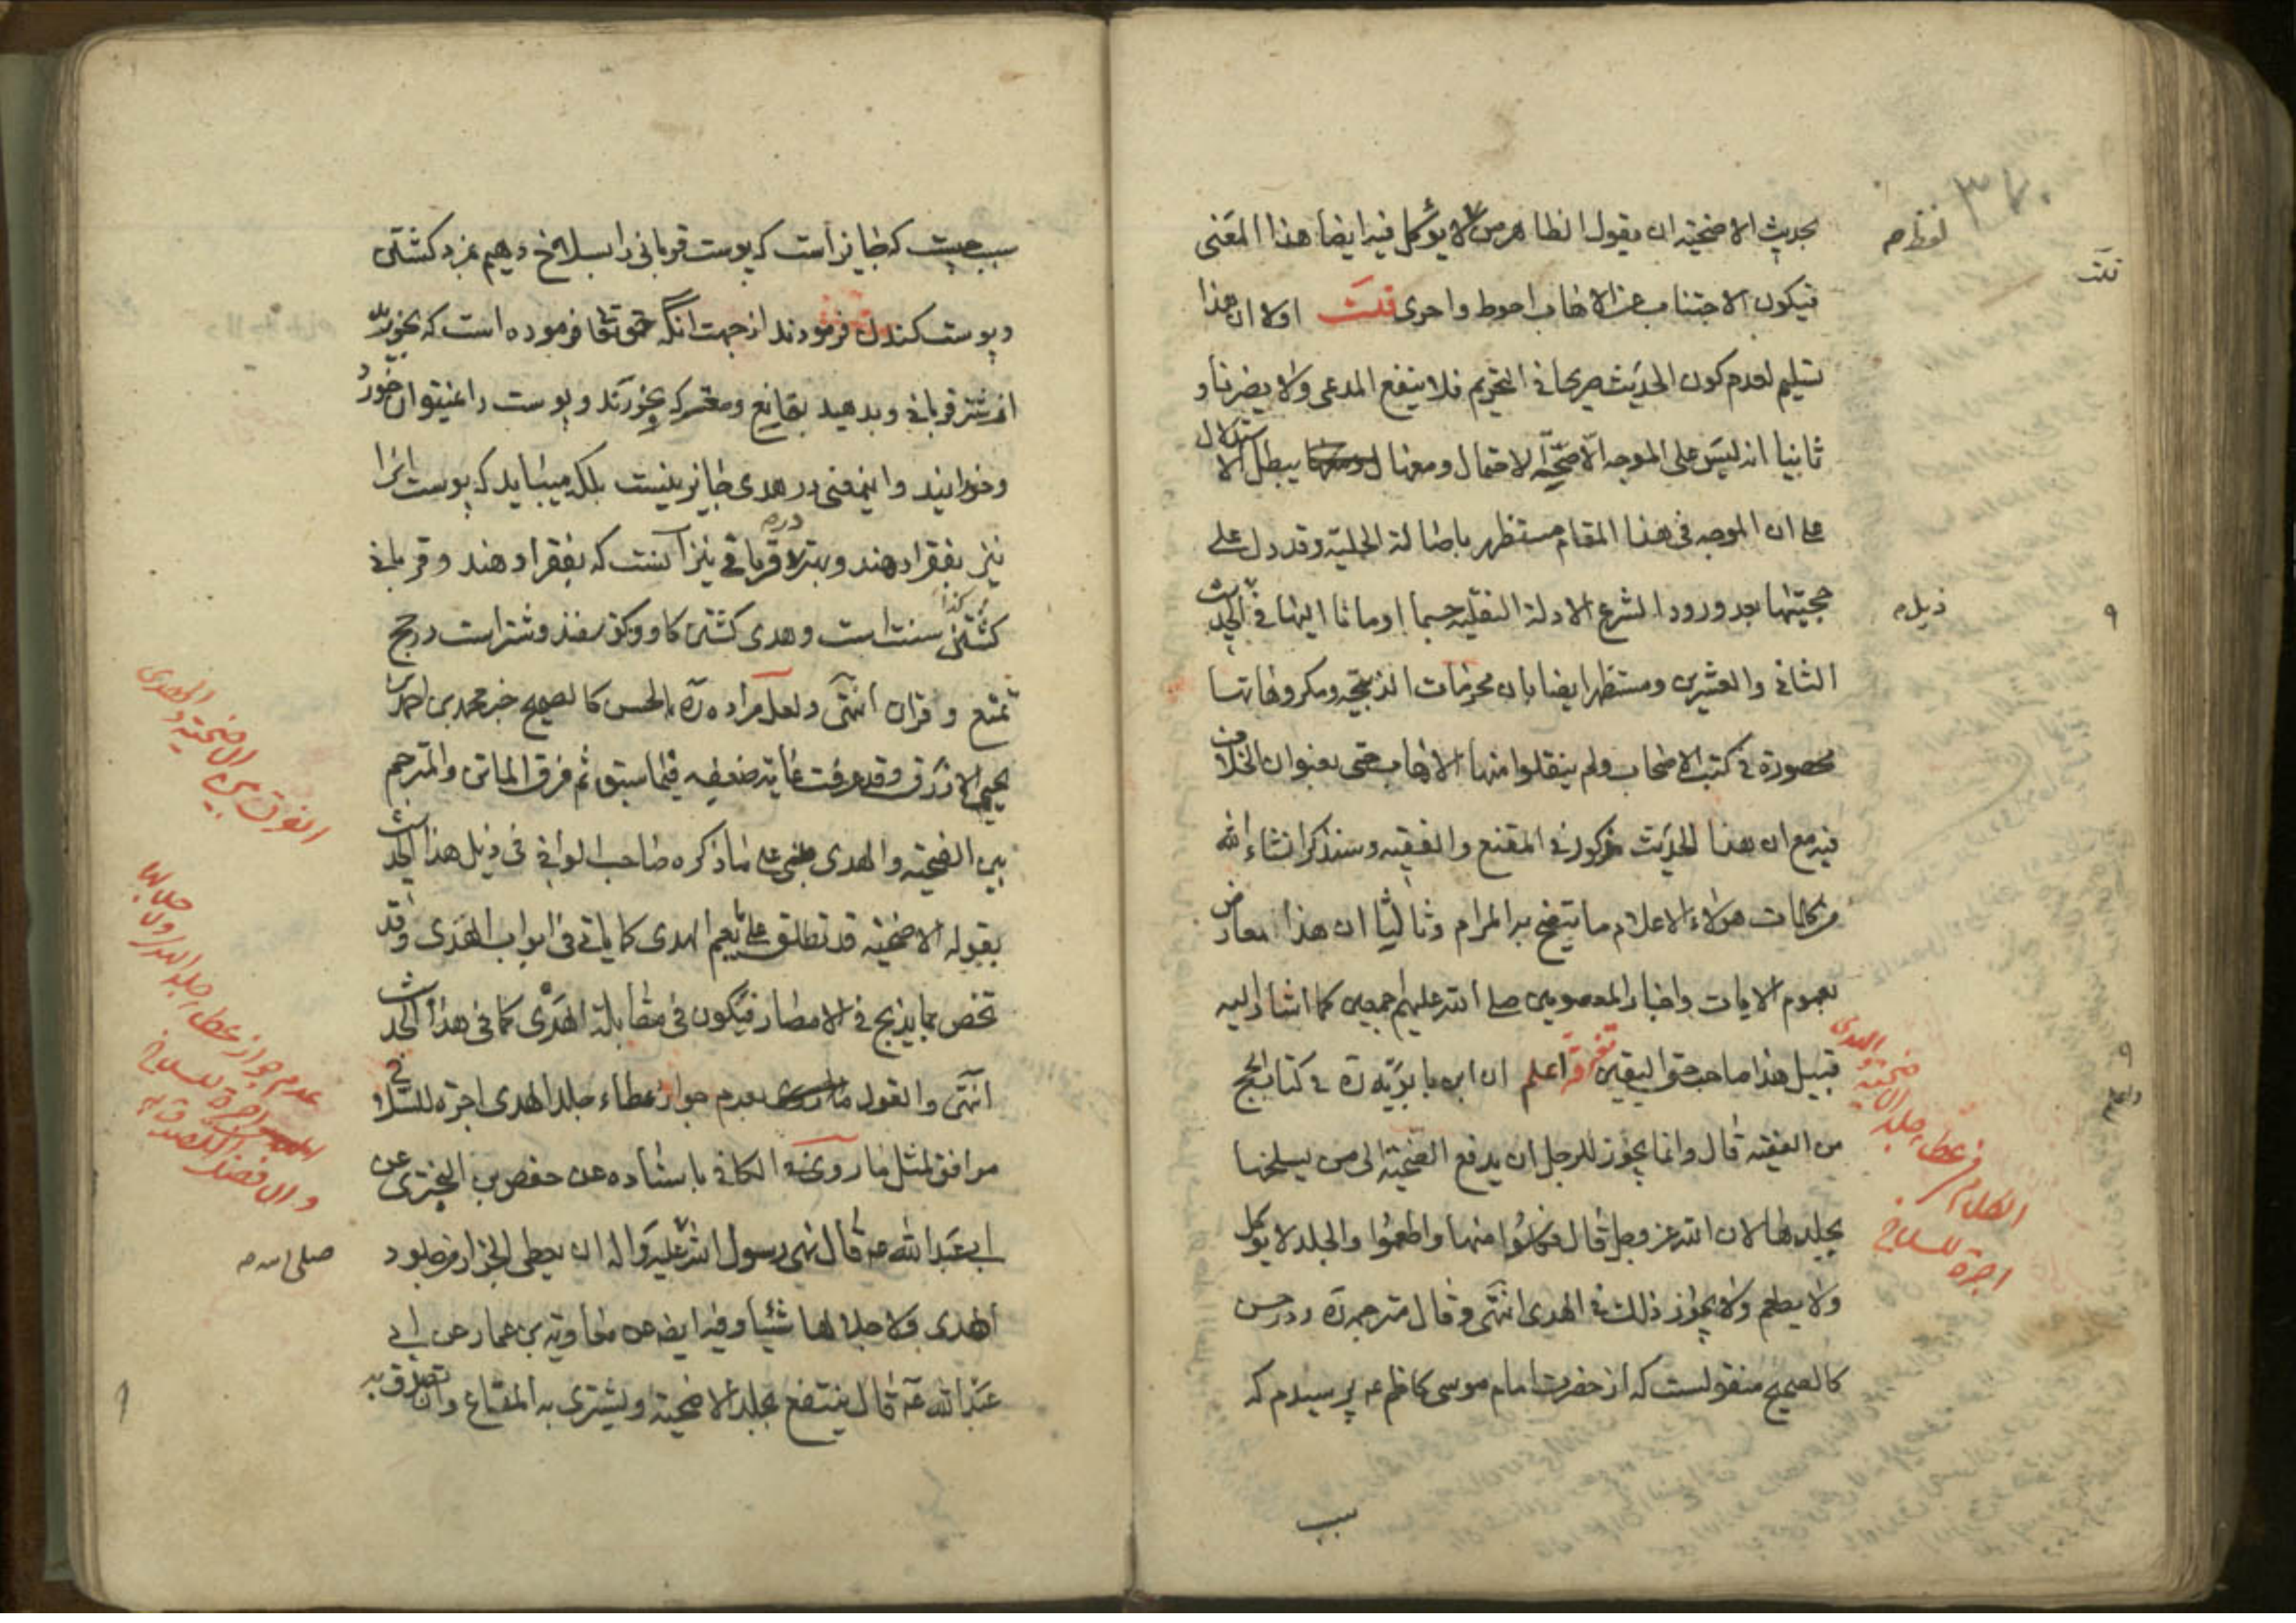 بحديث الاضحية ان يقول الظاهر من لا يؤكل فيه ايضا هذا المعنى
فيكون الاجتناب عن الاهاب احوط واحرى قلت اولا ان هذا
تسليم لعدم كون الحديث صريحا في التحريم فلا ينفع المدعى ولا يضرنا و
ثانيا انه ليس على الموجه الاصحة الاحتمال ومعها يبطل الاستدلال
على ان الموجه في هذا المقام مستظهر باصالة الحلية وقد دل على
حجيتها بعد ورود الشرع الادلة النقلية حسبما اومانا اليها في الحديث
الثاني والعشرين ومستظهر ايضا بان محرمات الذبيحة ومكروهاتها
محصورة في كتب الاصحاب ولم ينقلوا منها الاهاب حتى بعنوان الخلاف
فيه مع ان هذا الحديث مذكور في المقنع والفقيه وسنذكر انشاء الله
من كلمات هؤلاء الاعلام ما يتضح به المرام وثالثا ان هذا معارض
بعموم الايات واخبار المعصومين صلى الله عليهم اجمعين كما اشار اليه
قبيل هذا صاحب حق اليقين تفرقة اعلم ان ابن بابويه ره في كتاب الحج
من الفقيه قال وانما يجوز للرجل ان يدفع الضحية الى من يسلخها
بجلدها لان الله عز وجل قال فكلوا منها واطعموا والجلد لا يؤكل
ولا يطعم ولا يجوز ذلك في الهدى انتهى وقال مترجمه ره در حسن
كالصحيح منقولست كه از حضرت امام موسى كاظم ع پرسيدم كه
سبب
قلت
ذيل
الكلام في عطاء جلد الاضحية والهدى
اجرة للسلاخ
سبب چيست كه جايز است كه پوست قربانى را بسلاخ دهيم بمزد كشتن
و پوست كندن فرمودند از جهت آنكه حق تعا فرموده است كه بخوريد
از شتر قربانى و بدهيد بقانع و معتر كه بخورند و پوست را نميتوان خورد
و خورانيد و اينمعنى در هدى جايز نيست بلكه ميبايد كه پوست انرا
نيز بفقرا دهند و بهتر در قربانى نيز آنست كه بفقرا دهند و قربانى
كشتن سنت است و هدى كشتن كاو و كوسفند و شتر است در حج
تمتع و قران انتهى ولعل مراده ره بالحسن كالصحيح خبر محمد بن احمد بن
يحيى الازرق وقد عرفت غاية ضعفه فيما سبق ثم فرق الماتن والمترجم
بين الضحية والهدى مبنى على ما ذكره صاحب الوافي في ذيل هذا الحديث
بقوله الاضحية قد تطلق على ما يعم الهدى كما ياتي في ابواب الهدى وقد
تخص بما يذبح في الامصار فيكون في مقابلة الهدى كما في هذا الحديث
انتهى والقول بعدم جواز عطاء جلد الهدى اجرة للسلاخ
موافق لمثل ما روى في الكافي باسناده عن حفص بن البخترى عن
ابي عبد الله ع قال نهى رسول الله عليه واله ان يعطى الجزار من جلود
الهدى ولا جلالها شيئا وفيه ايضا عن معاوية بن عمار عن ابي
عبد الله ع قال ينتفع بجلد الاضحية ويشترى به المتاع وان تصدق به
الفرق بين الاضحية والهدى
عدم جواز عطاء جلد الهدى وجلالها
اجرة للسلاخ
وان افضل التصدق به
صلى الله